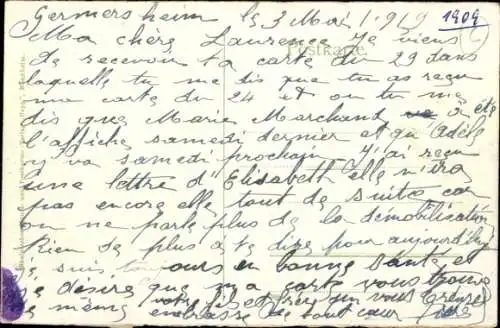 Germersheim le 3 Mai 1919
1909
Postkarte
Ma chère Laurence Je viens
de recevoir ta carte du 29 dans
laquelle tu me dis que tu as reçu
ma carte du 24 et ou tu me
dis que Marie Marchand a été
l'affiche samedi dernier et qu Adèle
y va samedi prochain J'ai reçu
une lettre d'Elisabeth elle n'ira
pas encore elle tout de suite car
on ne parle plus de la démobilisation
Rien de plus a te dire pour aujourd'hui
je suis toujours en bonne santé et
je désire que ma carte vous trouve
de même votre fils et frère qui vous
embrasse de tout cœur